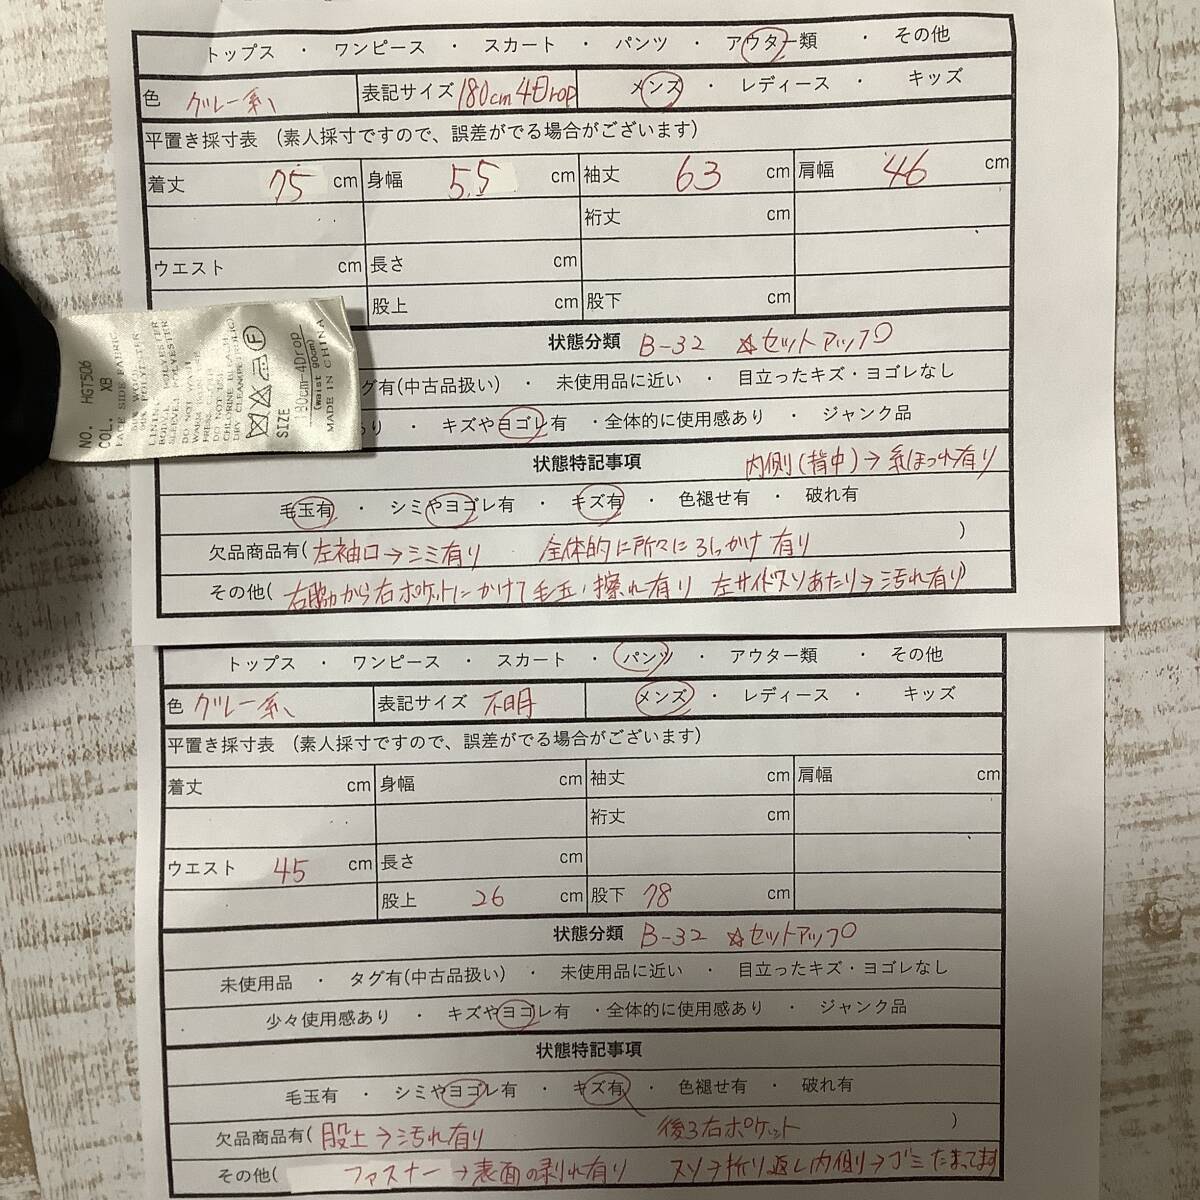 トップス ・ ワンピース ・ スカート ・ パンツ ・ アウター類 ・ その他
色 グレー系、 表記サイズ 180cm 4Drop メンズ ・ レディース ・ キッズ
平置き採寸表 (素人採寸ですので、誤差がでる場合がございます)
着丈 75 cm 身幅 55 cm 袖丈 63 cm 肩幅 46 cm
裄丈 cm
ウエスト cm 長さ cm
股上 cm 股下 cm
状態分類 B-32 ☆セットアップ○
グ有(中古品扱い) ・ 未使用品に近い ・ 目立ったキズ・ヨゴレなし
り ・ キズやヨゴレ有 ・全体的に使用感あり ・ ジャンク品
状態特記事項 内側(背中)→糸ほつれ有り
毛玉有 ・ シミやヨゴレ有 ・ キズ有 ・ 色褪せ有 ・ 破れ有
欠品商品有( 左袖口→シミ有り 全体的に所々にひっかけ有り )
その他( 右脇から右ポケットにかけて毛玉、擦れ有り 左サイドスソあたり→汚れ有り)
NO. HGT506
COL. XB
FACE SIDE FABRIC
SIZE
180cm-4Drop
(waist 90cm)
MADE IN CHINA
トップス ・ ワンピース ・ スカート ・ パンツ ・ アウター類 ・ その他
色 グレー系、 表記サイズ 不明 メンズ ・ レディース ・ キッズ
平置き採寸表 (素人採寸ですので、誤差がでる場合がございます)
着丈 cm 身幅 cm 袖丈 cm 肩幅 cm
裄丈 cm
ウエスト 45 cm 長さ cm
股上 26 cm 股下 78 cm
状態分類 B-32 ☆セットアップ○
未使用品 ・ タグ有(中古品扱い) ・ 未使用品に近い ・ 目立ったキズ・ヨゴレなし
少々使用感あり ・ キズやヨゴレ有 ・全体的に使用感あり ・ ジャンク品
状態特記事項
毛玉有 ・ シミやヨゴレ有 ・ キズ有 ・ 色褪せ有 ・ 破れ有
欠品商品有( 股上→汚れ有り 後ろ右ポケット )
その他( ファスナー→表面の剥れ有り スソ→折り返し内側→ゴミたまってます